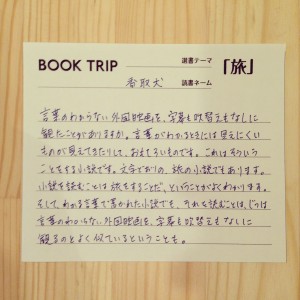 BOOK TRIP
選書テーマ
「旅」
香取犬
読書ネーム
言葉のわからない外国映画を、字幕も吹替えもなしに
観たことがありますか。言葉がわかるときには見えにくい
ものが見えてきたりして、おもしろいものです。これはそういう
ことをする小説です。文字どおりの、旅の小説でもあります。
小説を読むことは旅をすることだ、ということがよくわかります。
そして、わかる言葉で書かれた小説でも、それを読むことは、じつは
言葉のわからない外国映画を、字幕も吹替えもなしに
観るのとよく似ているということも。